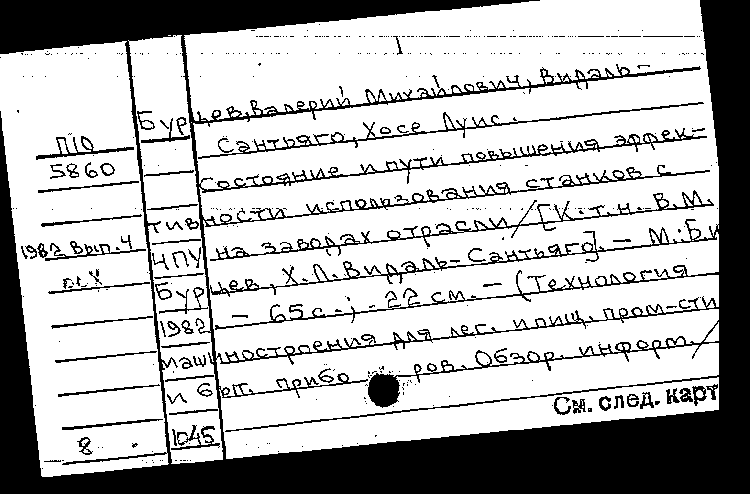 1
Бурцев, Валерий Михайлович, Видаль-
Сантьяго, Хосе Луис.
П10
5860
Состояние и пути повышения эффек-
тивности использования станков с
1982 вып. 4
ЧПУ на заводах отрасли / [К.т.н. В.М.
Бурцев, Х.Л. Видаль-Сантьяго]. - М.: Б.и
1982. - 65 с.; 22 см. - (Технология
машиностроения для лег. и пищ. пром-сти
и быт. прибо ров. Обзор. информ. /
См. след. карт
8
1045